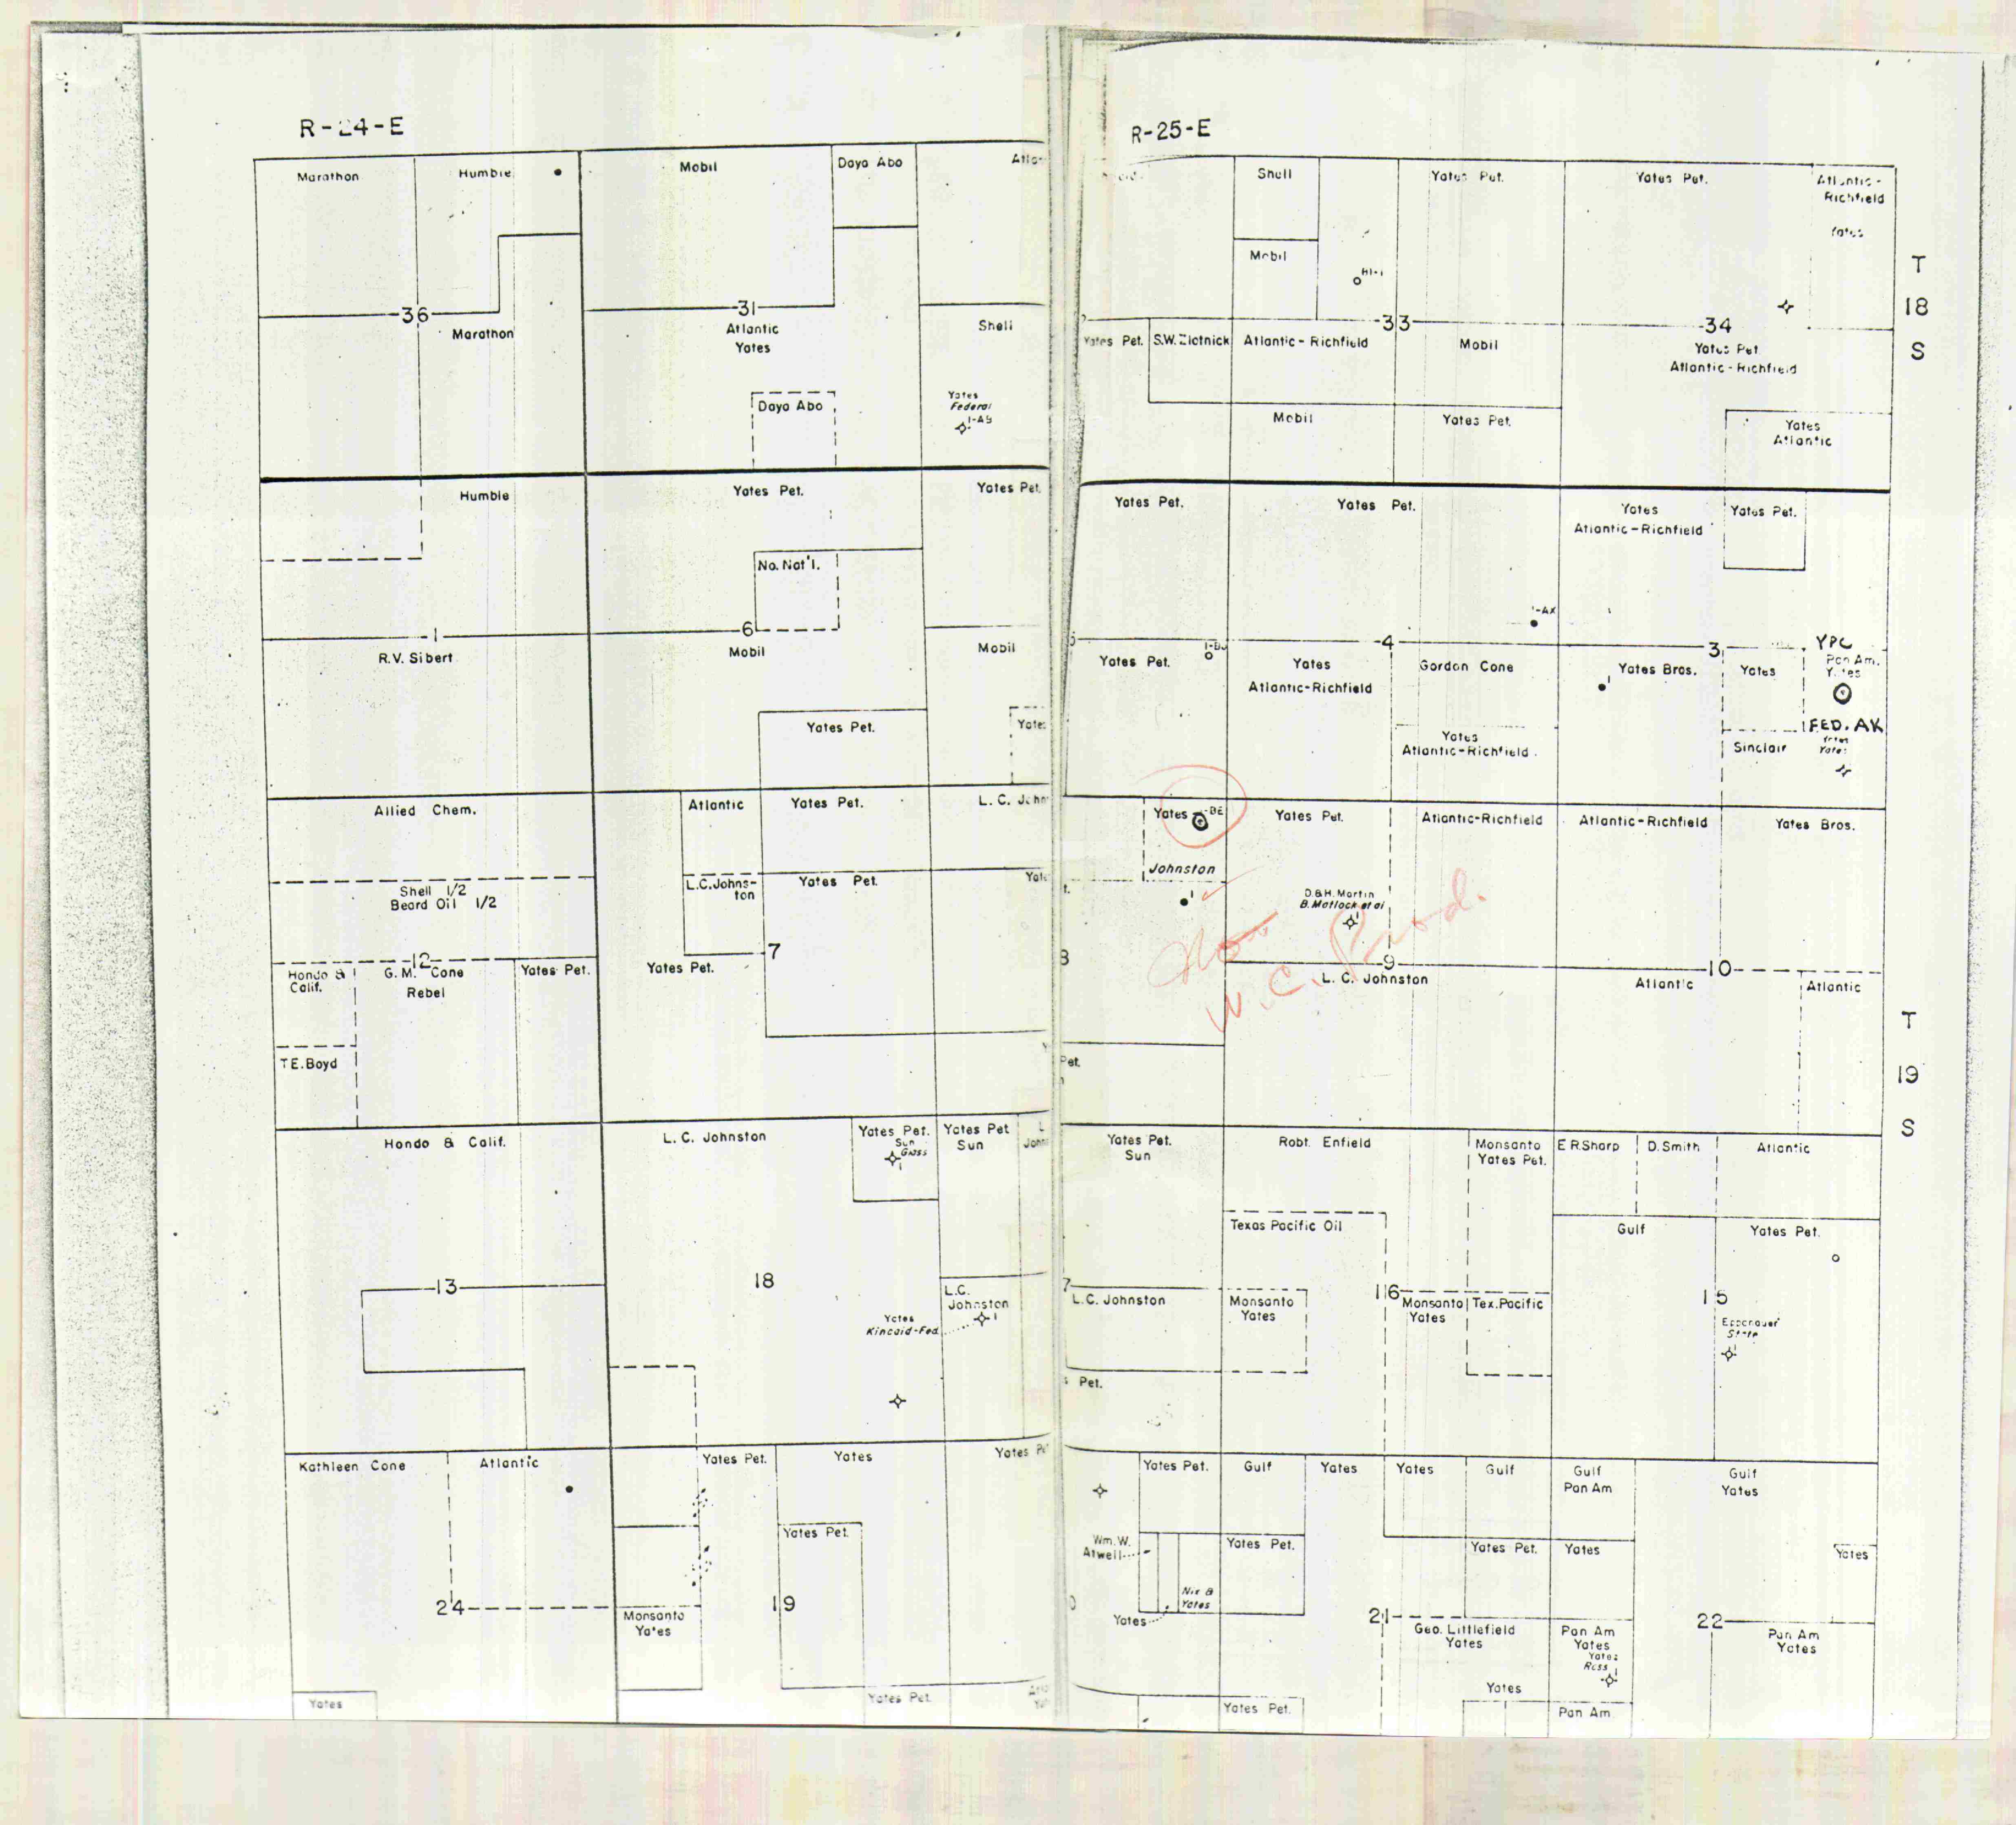 R-24-E
R-25-E
Marathon
Humble
Mobil
Dayo Abo
Shell
Yates Pet.
Yates Pet.
Atlantic-
Richfield
Yates
Mobil
T
18
S
36
Marathon
31
Atlantic
Yates
Shell
33
34
Yates Pet.
S.W. Zlotnick
Atlantic-Richfield
Mobil
Yates Pet.
Atlantic-Richfield
Dayo Abo
Yates
Federal
1-A9
Mobil
Yates Pet.
Yates
Atlantic
Humble
Yates Pet.
Yates Pet.
Yates Pet.
Yates Pet.
Yates
Atlantic-Richfield
Yates Pet.
No. Nat'l.
1-AX
1
R.V. Sibert
6
Mobil
Mobil
Yates Pet.
4
Yates
Atlantic-Richfield
Gordon Cone
3
Yates Bros.
1
Yates
YPC
Pan Am.
Yates
FED. AK
Yates Pet.
Yates
Atlantic-Richfield
Sinclair
Allied Chem.
Atlantic
Yates Pet.
Yates
-BE
Yates Pet.
Atlantic-Richfield
Atlantic-Richfield
Yates Bros.
Shell 1/2
Beard Oil 1/2
L.C. Johns-
ton
Yates Pet.
Johnston
1
D.&H. Martin
B. Matlock et al
1
W.C. Prod.
12
Hondo &
Calif.
G.M. Cone
Rebel
Yates Pet.
Yates Pet.
7
9
L. C. Johnston
10
Atlantic
Atlantic
T.E. Boyd
Pet.
T
19
S
Hondo & Calif.
L. C. Johnston
Yates Pet.
Sun
Glass
1
Yates Pet
Sun
Yates Pet.
Sun
Robt. Enfield
Monsanto
Yates Pet.
E.R. Sharp
D. Smith
Atlantic
Texas Pacific Oil
Gulf
Yates Pet.
13
18
L.C.
Johnston
1
Yates
Kincaid-Fed.
7
L.C. Johnston
Monsanto
Yates
16
Monsanto
Yates
Tex. Pacific
15
Eppenauer
State
1
Pet.
Kathleen Cone
Atlantic
Yates Pet.
Yates
Yates Pet.
Gulf
Yates
Yates
Gulf
Gulf
Pan Am
Gulf
Yates
Yates Pet.
Wm. W.
Atwell
Yates Pet.
Yates Pet.
Yates
Yates
Nix &
Yates
Yates
24
Monsanto
Yates
19
21
Geo. Littlefield
Yates
Pan Am
Yates
Yates
Ross
1
22
Pan Am
Yates
Yates
Yates
Yates Pet.
Yates Pet.
Pan Am